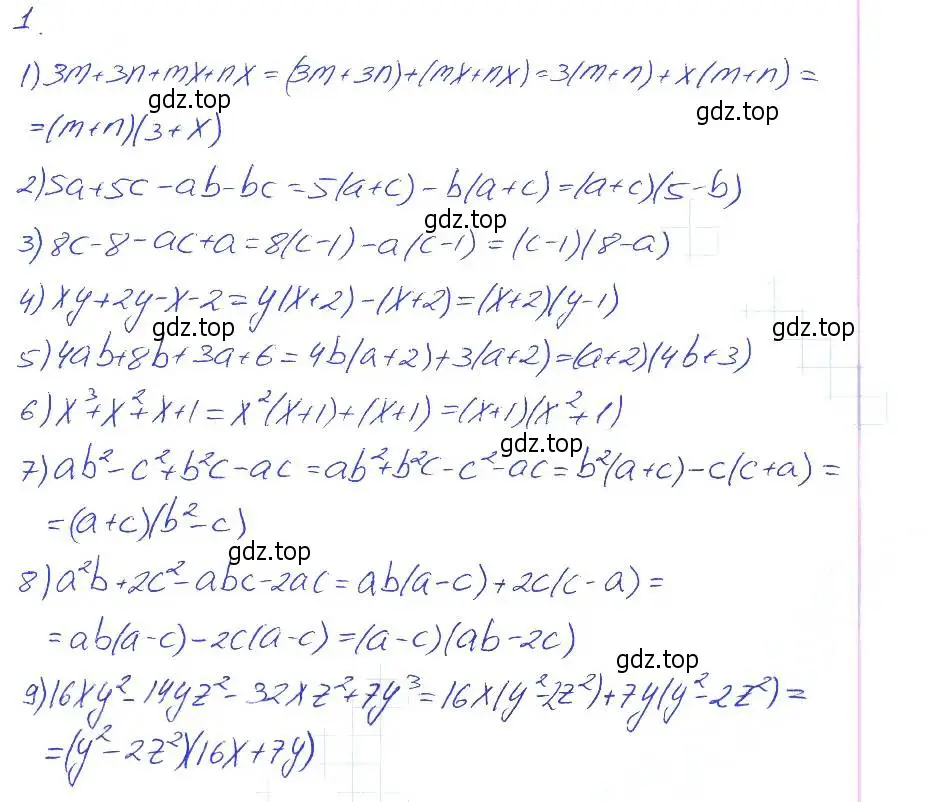 1.
1) 3m+3n+mx+nx = (3m+3n)+(mx+nx) = 3(m+n)+x(m+n) =
gdz.top
gdz.top
=(m+n)(3+x)
2) 5a+5c-ab-bc = 5(a+c)-b(a+c) = (a+c)(5-b)
gdz.top
3) 8c-8-ac+a = 8(c-1)-a(c-1) = (c-1)(8-a)
4) xy+2y-x-2 = y(x+2)-(x+2) = (x+2)(y-1)
gdz.top
gdz.top
5) 4ab+8b+3a+6 = 4b(a+2)+3(a+2) = (a+2)(4b+3)
6) x³+x²+x+1 = x²(x+1)+(x+1) = (x+1)(x²+1)
gdz.top
7) ab²-c²+b²c-ac = ab²+b²c-c²-ac = b²(a+c)-c(c+a) =
=(a+c)(b²-c)
gdz.top
8) a²b+2c²-abc-2ac = ab(a-c)+2c(c-a) =
=ab(a-c)-2c(a-c) = (a-c)(ab-2c)
gdz.top
9) 16xy²-14yz²-32xz²+7y³ = 16x(y²-2z²)+7y(y²-2z²) =
=(y²-2z²)(16x+7y)